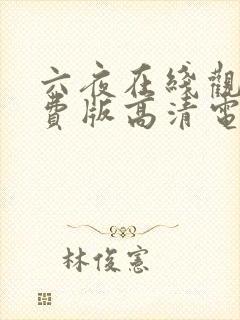 六夜在綫觀
費版高清電
林俊憲